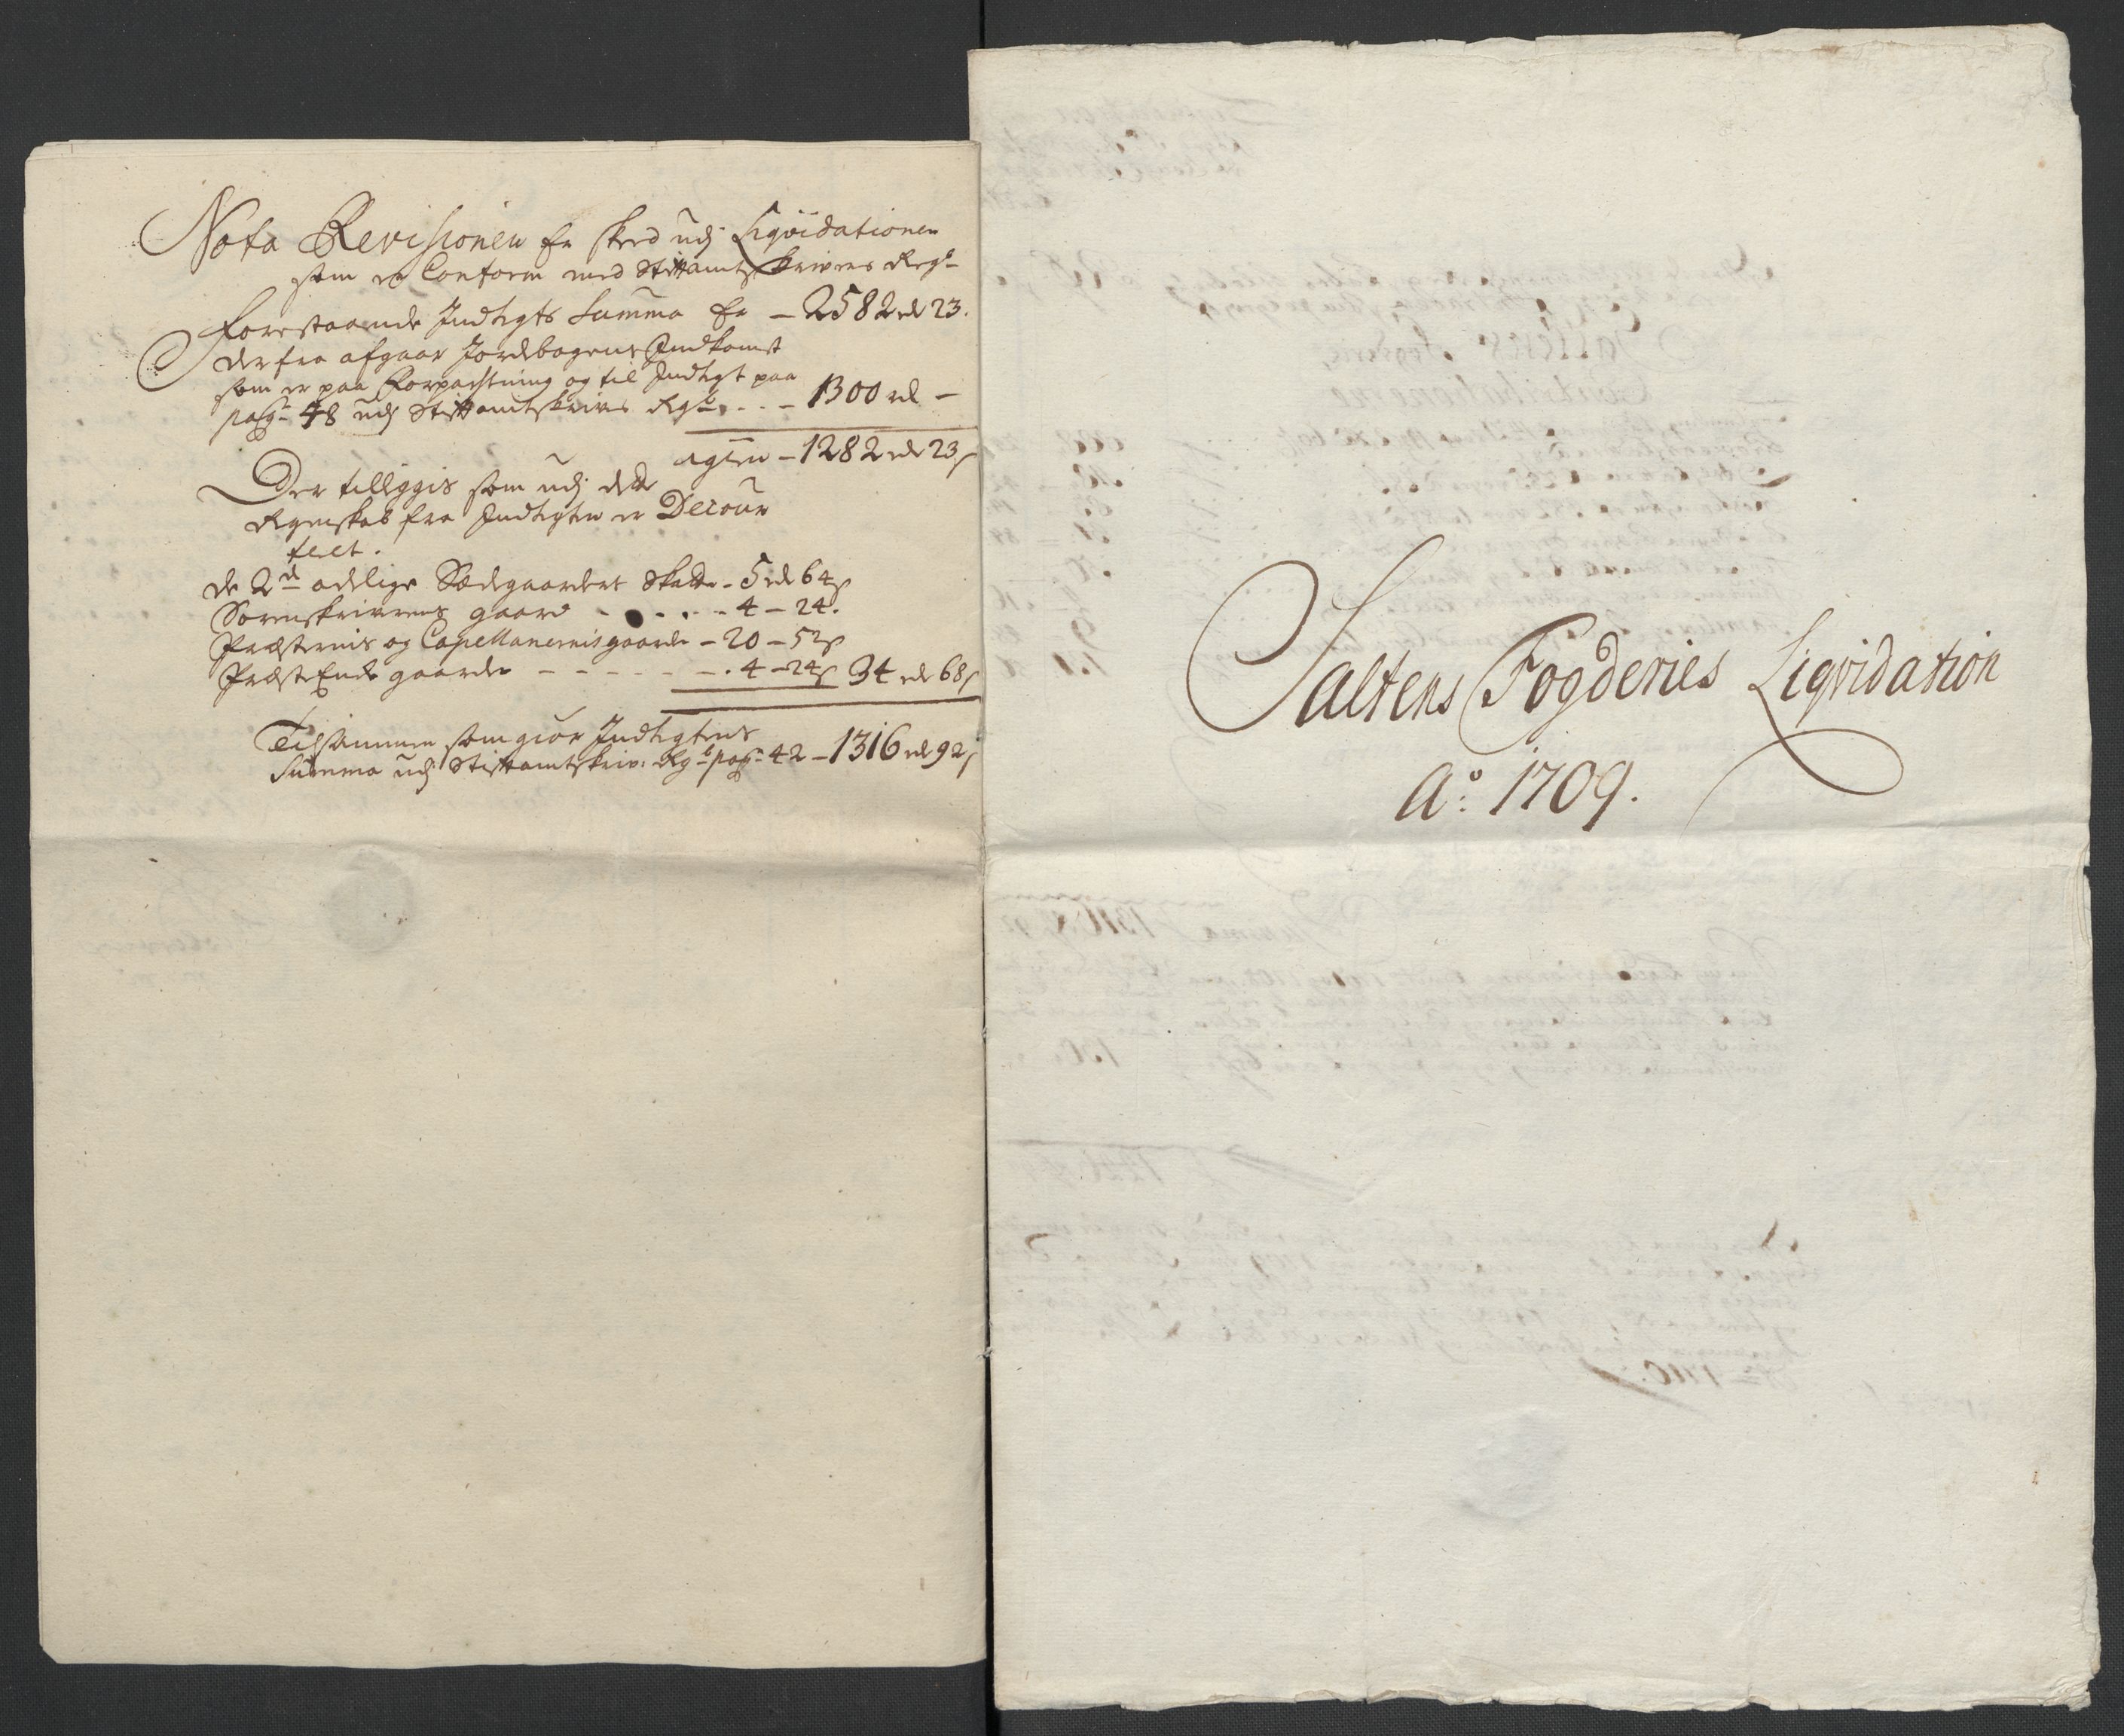 Nota Revisionen er skeed udj Liqvidationen
som er Conform med Stiftamtskrivers Regb
Forestaaende Indtegts Summa er – 2582 rd 23.
Derfra afgaar Jordebogens Indkomst
som er paa Forpachtning og til Indtegt paa
pag: 48 udj Stiftamtskrives Rgb - - - 1300 rd –
igien – 1282 rd 23 s
Der tilleggis som udj dette
Regenskab fra Indtegten er Decour
teret.
de 2de adelige Sædegaarders Skatte - 5 rd 64 s
Sorenskriverens gaard - - - - - 4 – 24.
Præsternis og Capellanernis gaarde – 20 – 52 s
Præste Enke gaarde - - - - - 4 – 24 s 34 rd 68 s
Tilsammen som giør Indtegtens
Summa udj Stiftamtskriv: Rgb pag: 42 – 1316 rd 92 s
Saltens Fogderies Liqvidation
Ao: 1709.